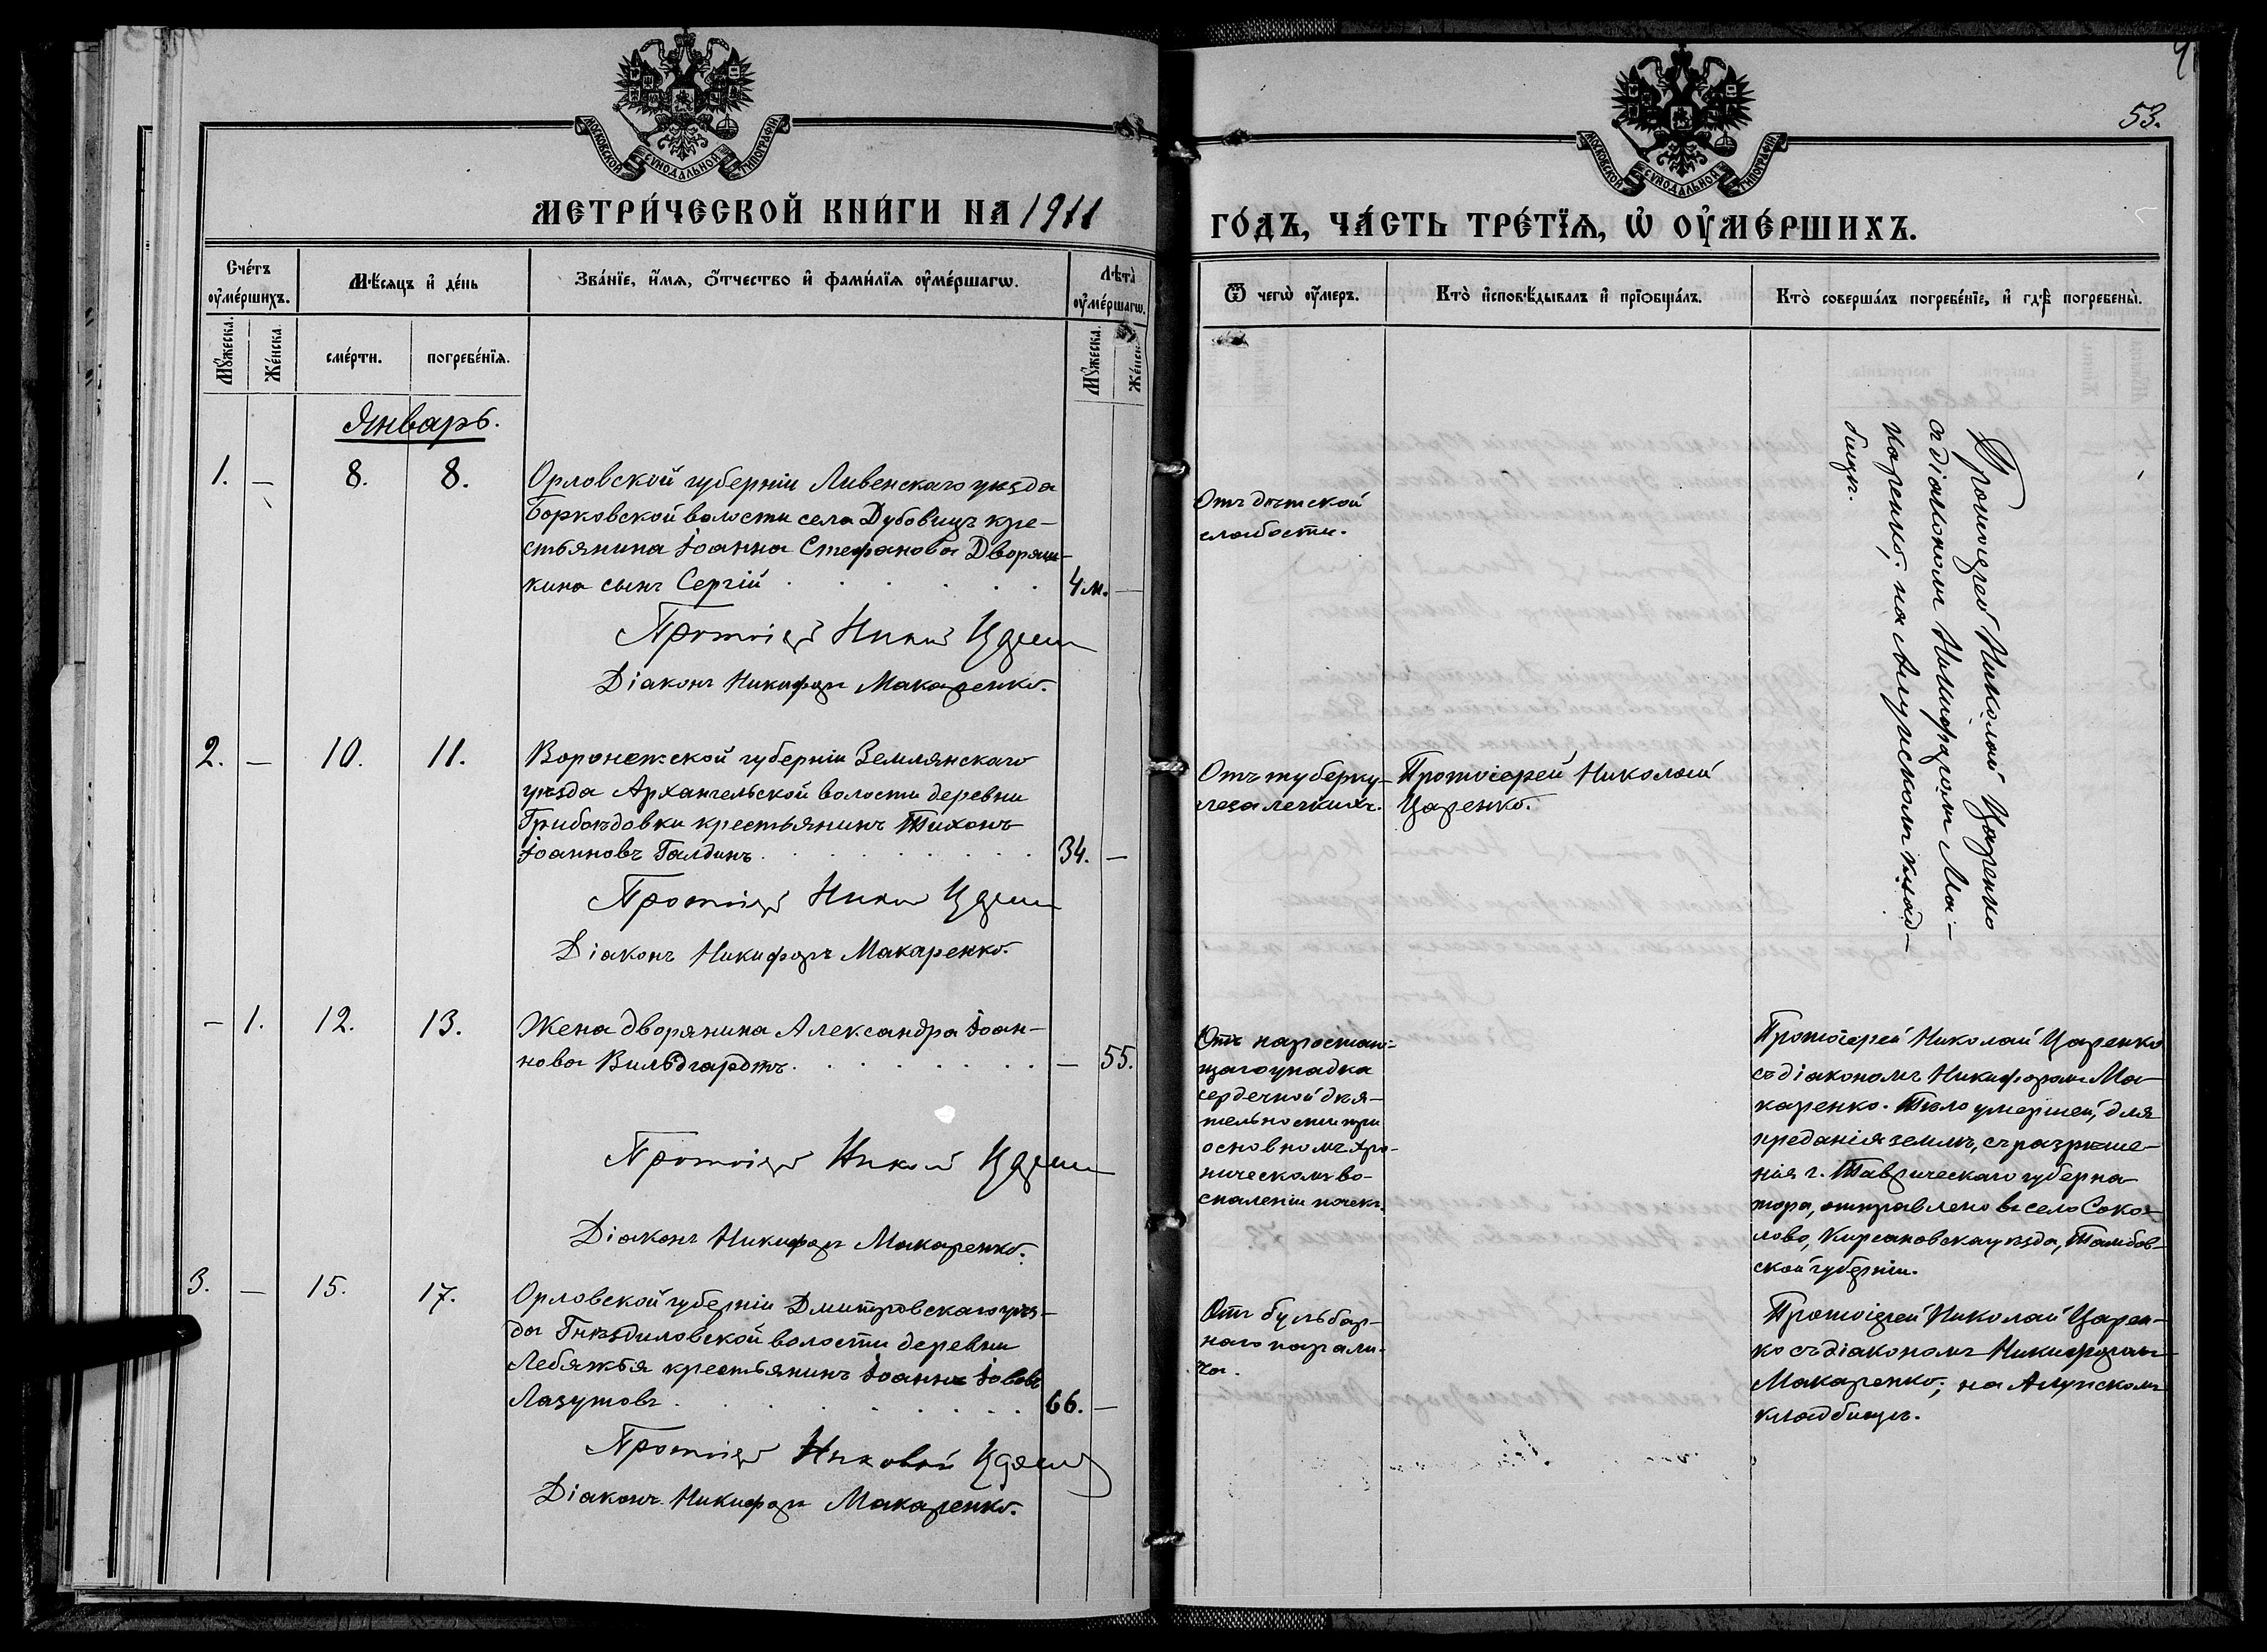 МОСКОВСКОЙ СѴНОДАЛЬНОЙ ТИПОГРАФІИ
МЕТРИ́ЧЕСКОЙ КНИ́ГИ НА 1911
Сче́тъ оу҆ме́ршихъ.
Мѣ́сяцъ и҆ де́нь
Зва́нїе, и҆́мя, о҆́тчество и҆ фами́лїя оу҆ме́ршагѡ.
Лѣта̀ оу҆ме́ршагѡ.
Мꙋ́жеска.
Же́нска.
сме́рти.
погребе́нїя.
Мꙋ́жеска.
Же́нска.
Январь.
1. — 8. 8.
Орловской губерніи Ливенскаго уѣзда
Борковской волости села Дубовицъ кре-
стьянина Іоанна Стефанова Дворяш-
кина сынъ Сергій . . . . . . 4 м. —
Протоіерей Николай Царенко
Діаконъ Никифоръ Макаренко.
2. — 10. 11.
Воронежской губерніи Землянскаго
уѣзда Архангельской волости деревни
Грибоѣдовки крестьянинъ Тихонъ
Іоанновъ Галдинъ . . . . . . . 34. —
Протоіерей Николай Царенко
Діаконъ Никифоръ Макаренко.
— 1. 12. 13.
Жена дворянина Александра Іоан-
нова Вильдгардтъ . . . . . . . — 55.
Протоіерей Николай Царенко
Діаконъ Никифоръ Макаренко.
3. — 15. 17.
Орловской губерніи Дмитровскаго уѣз-
да Гнѣздиловской волости деревни
Лебяжья крестьянинъ Іоаннъ Іововъ
Лазутовъ . . . . . . . . 66. —
Протоіерей Николай Царенко
Діаконъ Никифоръ Макаренко.
53.
МОСКОВСКОЙ СѴНОДАЛЬНОЙ ТИПОГРАФІИ
ГО́ДЪ, ЧА́СТЬ ТРЕ́ТЇѦ, Ѡ҆ ОУ҆МЕ́РШИХЪ.
Ѿ чегѡ̀ оу҆́меръ.
Кто̀ и҆сповѣ́дывалъ и҆ прїѻбща́лъ.
Кто̀ соверша́лъ погребе́нїе, и҆ гдѣ̀ погребены̀.
Отъ дѣтской
слабости.
Протоіерей Николай Царенко
съ діакономъ Никифоромъ Ма-
каренко; на Алупскомъ клад-
бищѣ.
Отъ туберку-
леза легкихъ.
Протоіерей Николай
Царенко.
Отъ нарастаю-
щаго упадка
сердечной дѣя-
тельности при
основномъ хро-
ническомъ во-
спаленіи почекъ.
Протоіерей Николай Царенко
съ діакономъ Никифоромъ Ма-
каренко. Тѣло умершей, для
преданія землѣ, съ разрѣше-
нія г. Таврическаго губерна-
тора, отправлено въ село Соко-
лово, Кирсановскаго уѣзда, Тамбов-
ской губерніи.
Отъ бульбар-
наго парали-
ча.
Протоіерей Николай Царен-
ко съ діакономъ Никифоромъ
Макаренко; на Алупскомъ
кладбищѣ.